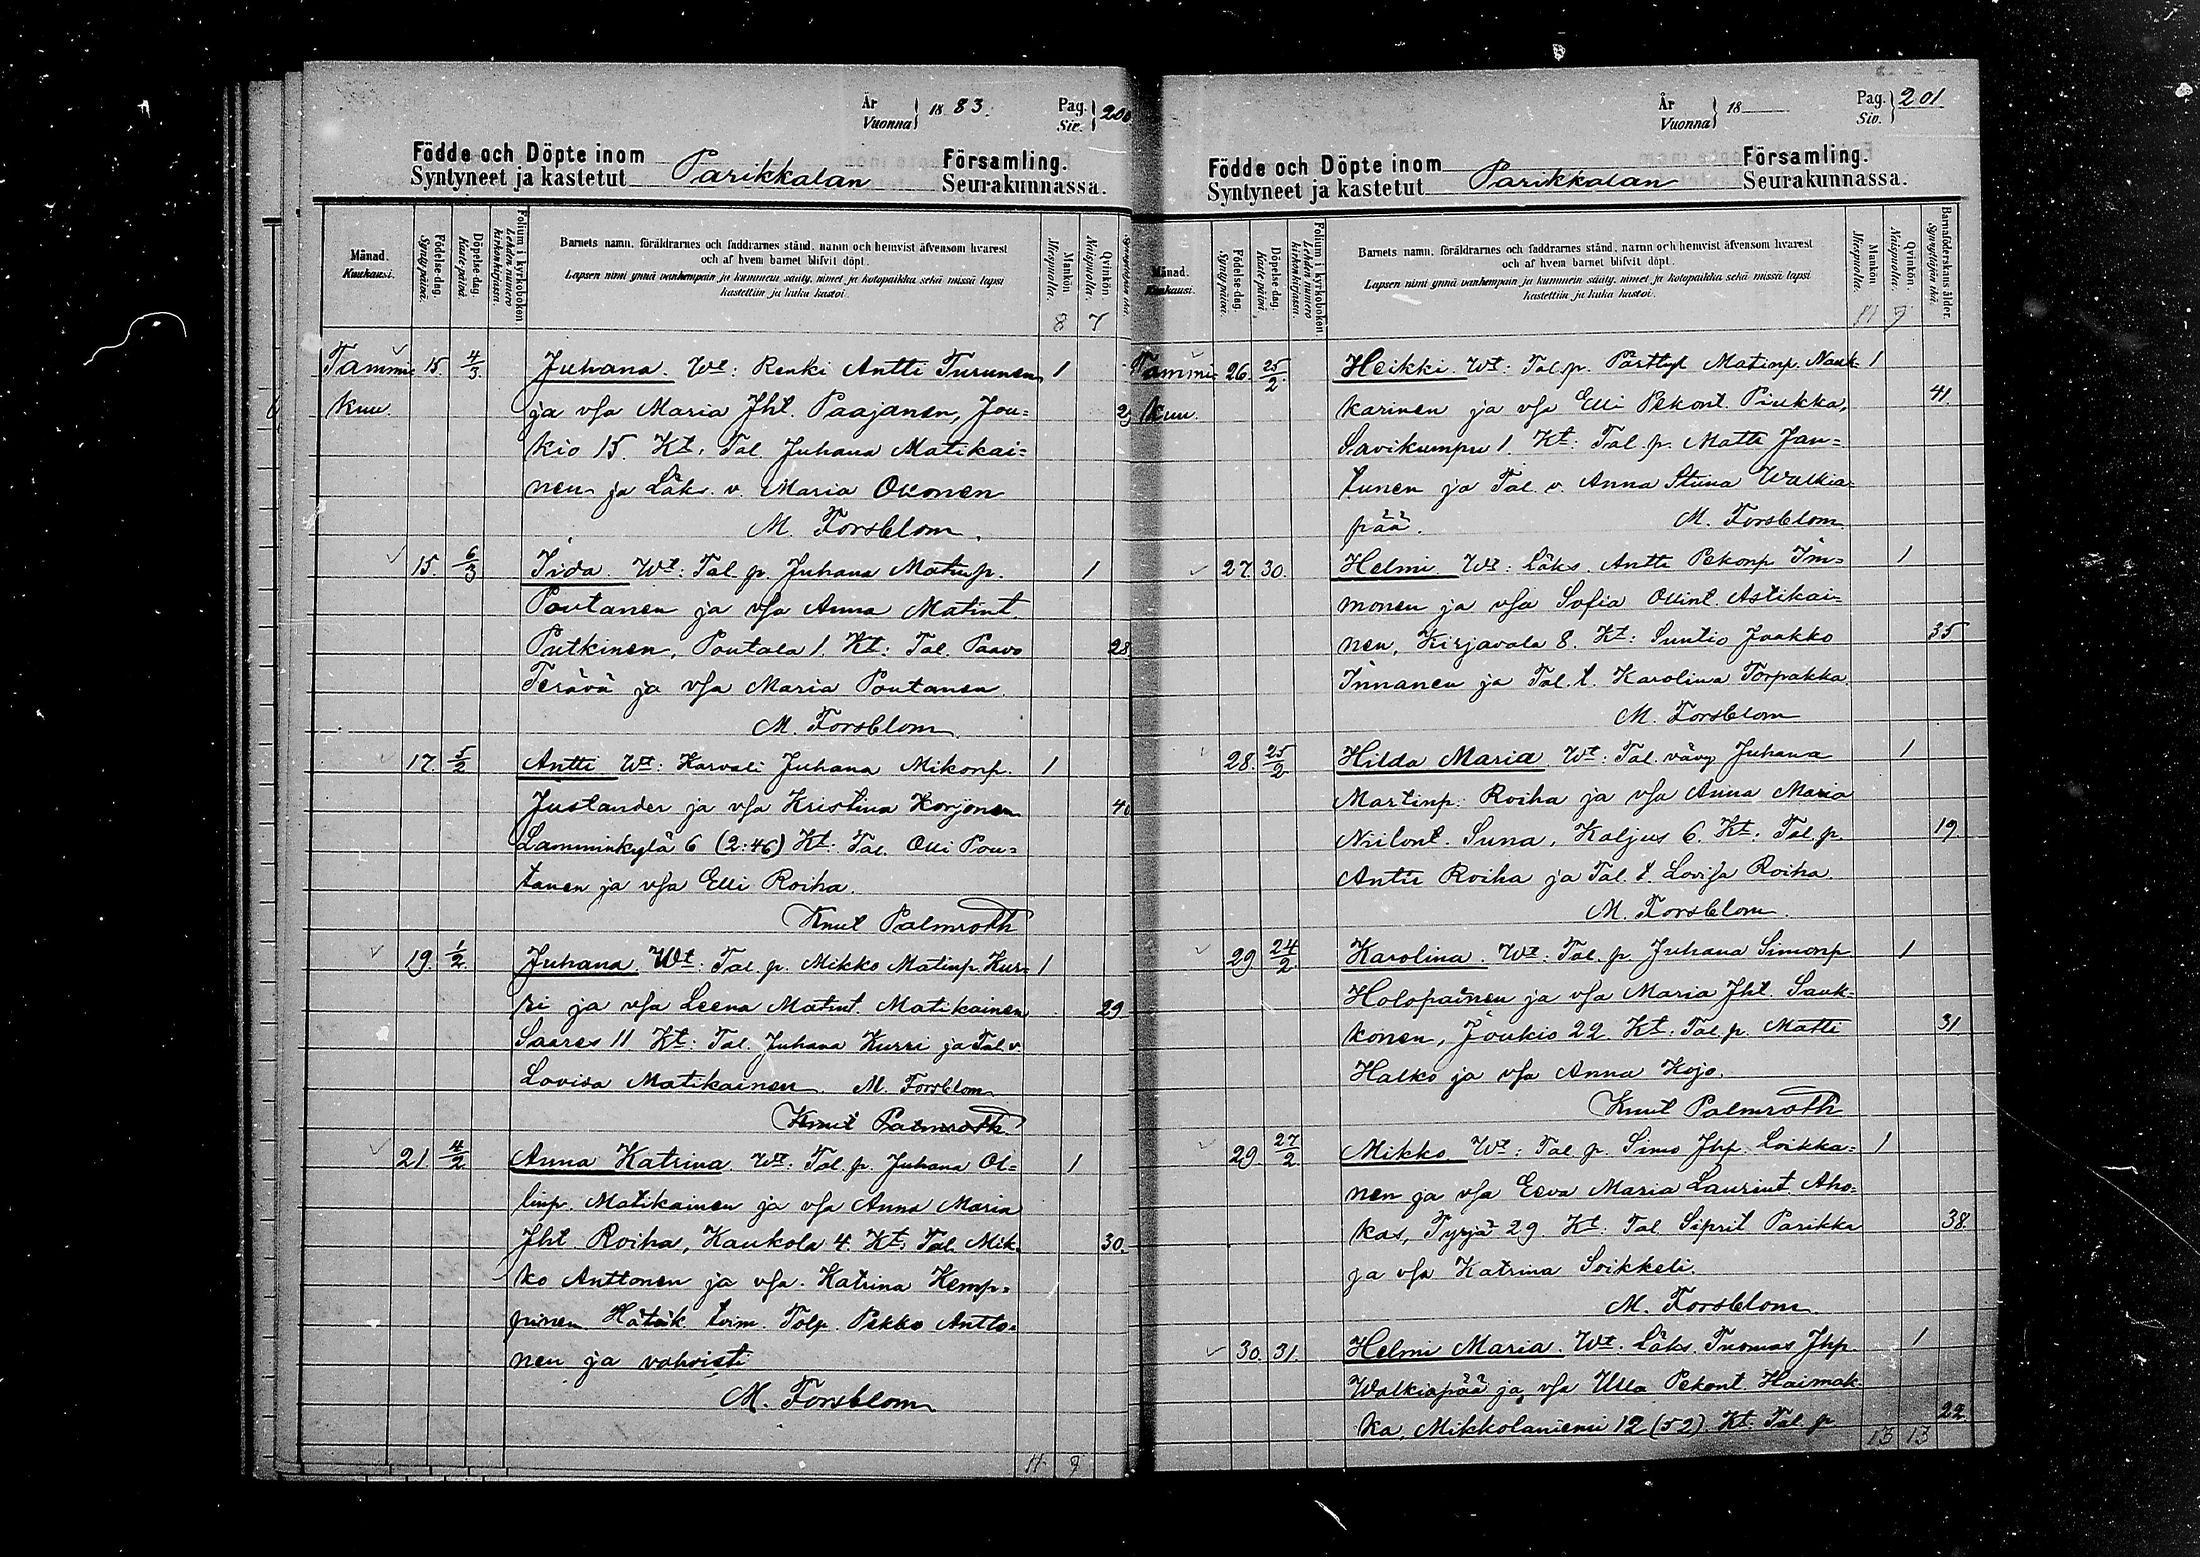 År
Vuonna } 18 83. Pag. Siv. } 200
Födde och Döpte inom
Syntyneet ja kastetut Parikkalan Församling.
Seurakunnassa.
Månad. Kuukausi.
Födelse-dag. Syntypäivä.
Döpelse-dag. Kastepäivä.
Folium i kyrkoboken. Lehden numero kirkonkirjassa.
Barnets namn, föräldrarnes och faddrarnes stånd, namn och hemvist äfvensom hvarest
och af hvem barnet blifvit döpt.
Lapsen nimi ynnä vanhempain ja kummein sääty, nimet ja kotopaikka sekä missä lapsi
kastettiin ja kuka kastoi.
Mankön Miespuolia. 8
Qvinkön Naispuolia. 7
Tammi- 15. 4/3. Juhana. Wt: Renki Antti Turunen 1
kuu. ja vsa Maria Jht. Paajanen, Jou= 2
kio 15. Kt: Tal. Juhana Matikai=
nen ja Läks. v. Maria Okonen
M. Forsblom.
15. 6/3 Iida. Wt: Tal. p. Juhana Matinp. 1
Poutanen ja vsa Anna Matint.
Putkinen, Poutala 1. Kt: Tal. Paavo 28
Terävä ja vsa Maria Poutanen.
M. Forsblom.
17. 5/2 Antti Wt: Karvali Juhana Mikonp. 1
Justander ja vsa Kristina Korjonen 40
Lamminkylä 6 (2:46) Kt: Tal. Olli Pou=
tanen ja vsa Elli Roiha.
Knut Palmroth
19. 1/2. Juhana Wt: Tal. p. Mikko Matinp. Kur= 1
ri ja vsa Leena Matint. Matikainen 29
Saares 11 Kt: Tal. Juhana Kurri ja Tal. v.
Lovisa Matikainen. M. Forsblom
Knut Palmroth.
21. 4/2 Anna Katrina. Wt: Tal. p. Juhana Ol= 1
linp. Matikainen ja vsa Anna Maria
Jht. Roiha, Kaukola 4. Kt: Tal. Mik= 30.
ko Anttonen ja vsa. Katrina Kemp=
pinen. Hätäk. toim. Tolp. Pekko Antto=
nen ja vahvisti
M. Forsblom
11 9
År
Vuonna } 18 Pag. Siv. } 201
Födde och Döpte inom
Syntyneet ja kastetut Parikkalan Församling.
Seurakunnassa.
Månad. Kuukausi.
Födelse-dag. Syntypäivä.
Döpelse-dag. Kastepäivä.
Folium i kyrkoboken. Lehden numero kirkonkirjassa.
Barnets namn, föräldrarnes och faddrarnes stånd, namn och hemvist äfvensom hvarest
och af hvem barnet blifvit döpt.
Lapsen nimi ynnä vanhempain ja kummein sääty, nimet ja kotopaikka sekä missä lapsi
kastettiin ja kuka kastoi.
Mankön Miespuolia. 11
Qvinkön Naispuolia. 9
Barnaföderskans ålder Synnyttäjän ikä.
Tammi- 26. 25/2. Heikki Wt: Tal. p. Pärttyl Matinp. Nauk= 1
kuu. karinen ja vsa Elli Pekont. Piukka, 41.
Savikumpu 1. Kt: Tal. p. Matti Jan=
tunen ja Tal. v. Anna Stiina Walkia=
pää. M. Forsblom
27. 30. Helmi. Wt: Läks. Antti Pekonp. Im= 1
monen ja vsa Sofia Ollint. Astikai=
nen, Kirjavala 8. Kt: Suntio Jaakko 35
Innanen ja Tal. t. Karolina Torpakka.
M. Forsblom
28. 25/2. Hilda Maria Wt: Tal. vävy Juhana 1
Martinp. Roiha ja vsa Anna Maria
Niilont. Suna, Kaljus 6. Kt: Tal. p. 19
Antti Roiha ja Tal. t. Lovisa Roiha.
M. Forsblom.
29 24/2. Karolina. Wt: Tal. p. Juhana Simonp. 1
Holopainen ja vsa Maria Jht. Sauk=
konen, Joukio 22 Kt: Tal. p. Matti 31
Halko ja vsa Anna Kojo.
Knut Palmroth
29. 27/2 Mikko Wt: Tal. p. Simo Jhp. Loikka= 1
nen ja vsa Eeva Maria Laurint. Aho=
kas, Tyrjä 29. Kt: Tal. Siprit Parikka 38.
ja vsa Katrina Soikkeli.
M. Forsblom.
30. 31. Helmi Maria. Wt. Läks. Tuomas Jhp. 1
Walkiapää ja vsa Ulla Pekont. Haimak=
ka, Mikkolaniemi 12 (52). Kt. Tal. p 22.
13 13